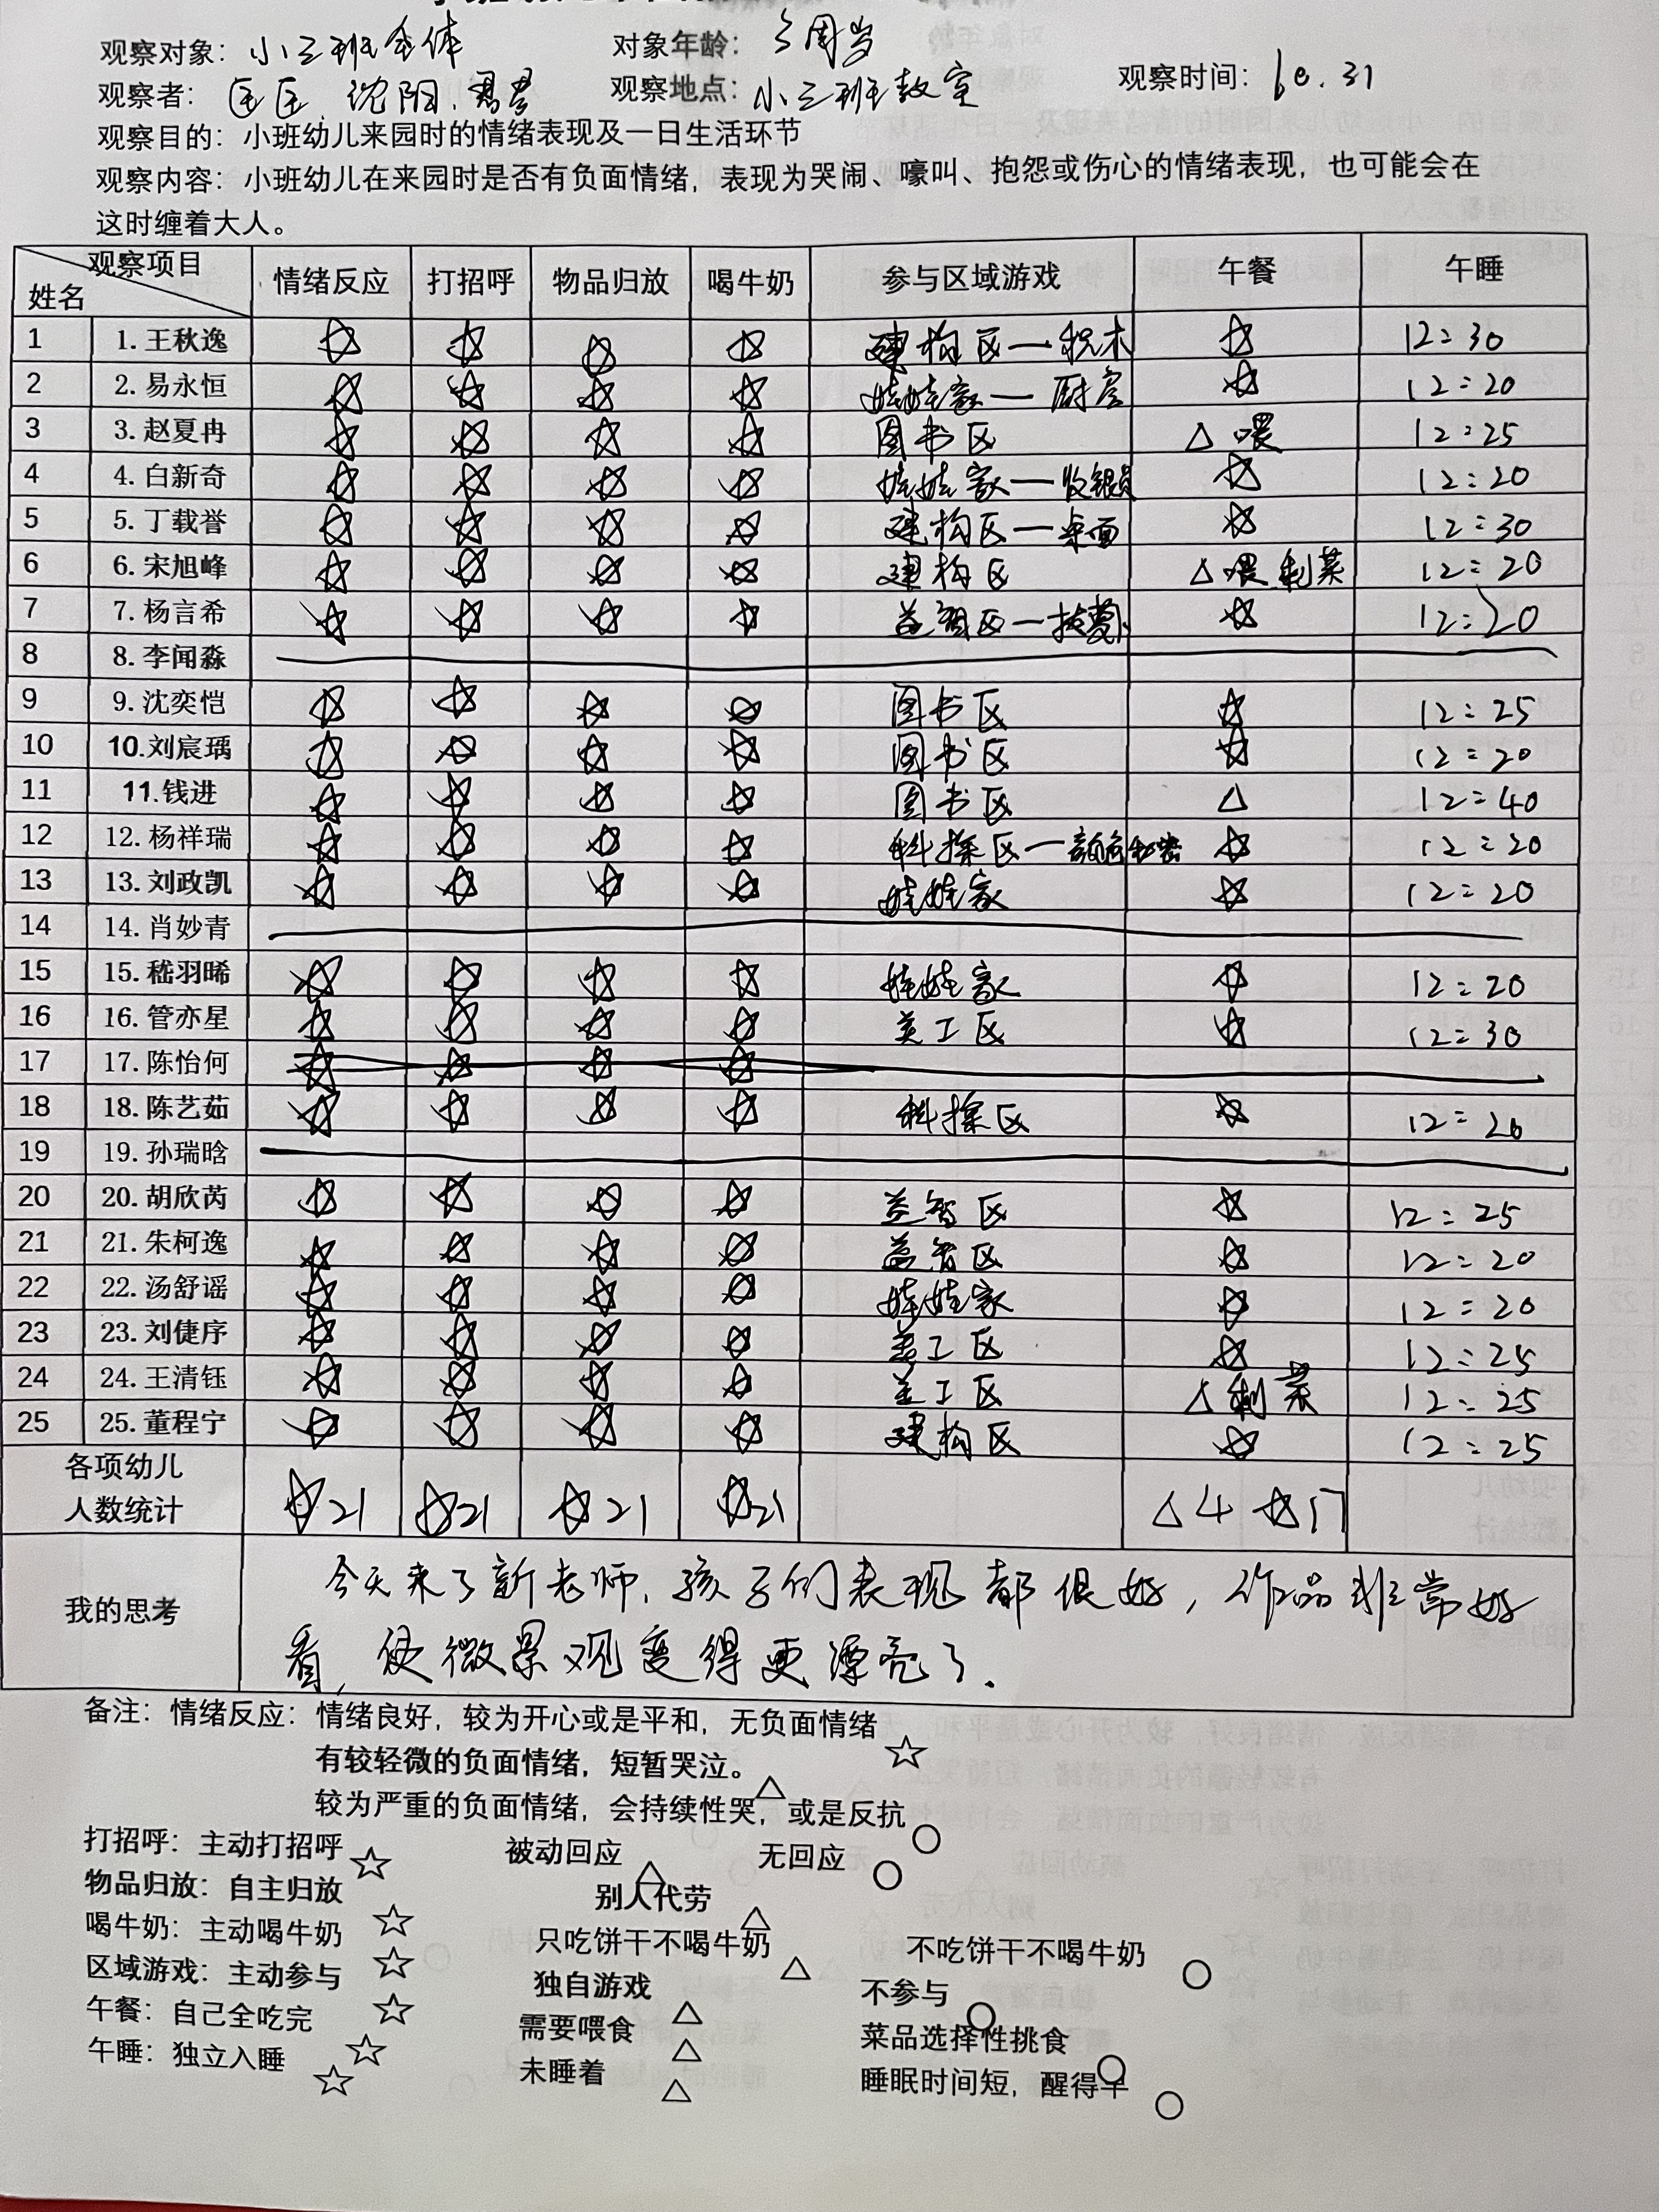 观察对象：小三班全体 对象年龄：3周岁
观察者：匡匡、沈阳、 观察地点：小三班教室 观察时间：10.31
观察目的：小班幼儿来园时的情绪表现及一日生活环节
观察内容：小班幼儿在来园时是否有负面情绪，表现为哭闹、嚎叫、抱怨或伤心的情绪表现，也可能会在
这时缠着大人。
观察项目 姓名 情绪反应 打招呼 物品归放 喝牛奶 参与区域游戏 午餐 午睡
1 1.王秋逸 ☆ ☆ ☆ ☆ 建构区—积木 ☆ 12:30
2 2.易永恒 ☆ ☆ ☆ ☆ 娃娃家—厨房 ☆ 12:20
3 3.赵夏冉 ☆ ☆ ☆ ☆ 图书区 △ 喂 12:25
4 4.白新奇 ☆ ☆ ☆ ☆ 娃娃家—收银员 ☆ 12:20
5 5.丁载誉 ☆ ☆ ☆ ☆ 建构区—桌面 ☆ 12:30
6 6.宋旭峰 ☆ ☆ ☆ ☆ 建构区 △喂 剩菜 12:20
7 7.杨言希 ☆ ☆ ☆ ☆ 益智区— ☆ 12:20
8 8.李闻淼
9 9.沈奕恺 ☆ ☆ ☆ ☆ 图书区 ☆ 12:25
10 10.刘宸瑀 ☆ ☆ ☆ ☆ 图书区 ☆ 12:20
11 11.钱进 ☆ ☆ ☆ ☆ 图书区 △ 12:40
12 12.杨祥瑞 ☆ ☆ ☆ ☆ 科探区—颜色秘密 ☆ 12:20
13 13.刘政凯 ☆ ☆ ☆ ☆ 娃娃家 ☆ 12:20
14 14.肖妙青
15 15.嵇羽晞 ☆ ☆ ☆ ☆ 娃娃家 ☆ 12:20
16 16.管亦星 ☆ ☆ ☆ ☆ 美工区 ☆ 12:30
17 17.陈怡何 ☆ ☆ ☆ ☆
18 18.陈艺茹 ☆ ☆ ☆ ☆ 科探区 ☆ 12:20
19 19.孙瑞晗
20 20.胡欣芮 ☆ ☆ ☆ ☆ 益智区 ☆ 12:25
21 21.朱柯逸 ☆ ☆ ☆ ☆ 益智区 ☆ 12:20
22 22.汤舒谣 ☆ ☆ ☆ ☆ 娃娃家 ☆ 12:20
23 23.刘倢序 ☆ ☆ ☆ ☆ 美工区 ☆ 12:25
24 24.王清钰 ☆ ☆ ☆ ☆ 美工区 △剩菜 12:25
25 25.董程宁 ☆ ☆ ☆ ☆ 建构区 ☆ 12:25
各项幼儿
人数统计 ☆21 ☆21 ☆21 ☆21 △4 ☆17
我的思考 今天来了新老师，孩子们表现都很好，作品非常好
看，使微景观变得更漂亮了.
备注：情绪反应：情绪良好，较为开心或是平和，无负面情绪 ☆
有较轻微的负面情绪，短暂哭泣。 △
较为严重的负面情绪，会持续性哭，或是反抗 ○
打招呼：主动打招呼 ☆ 被动回应 △ 无回应 ○
物品归放：自主归放 ☆ 别人代劳 △
喝牛奶：主动喝牛奶 ☆ 只吃饼干不喝牛奶 △ 不吃饼干不喝牛奶 ○
区域游戏：主动参与 ☆ 独自游戏 △ 不参与 ○
午餐：自己全吃完 ☆ 需要喂食 △ 菜品选择性挑食 ○
午睡：独立入睡 ☆ 未睡着 △ 睡眠时间短，醒得早 ○